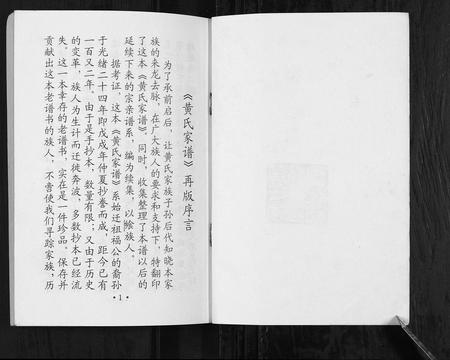 《黄氏家谱》再版序言
为了承前启后，让黄氏家族子孙后代知晓本家
族的来龙去脉，在广大族人的要求和支持下，特翻印
了这本《黄氏家谱》，同时，收集整理了本谱以后的
延续下来的宗亲谱系，编为续集，以飨族人。
据考证，这本《黄氏家谱》系始迁祖福公的裔孙
于光绪二十四年即戊戌年仲夏抄誊而成，距今已有
一百又二年。由于是手抄本，数量有限；又由于历史
的变革，族人为生计而迁徙奔波，多数抄本已经流
失。这一本幸存的老谱书，实在是一件珍品。保存并
贡献出这本老谱书的族人，不啻使我们寻踪家族，历
·1·